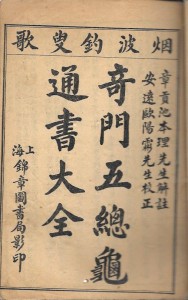 煙波釣叟歌
章貢池本理先生解註
安遠歐陽霱先生校正
奇門五總龜
通書大全
上海錦章圖書局影印